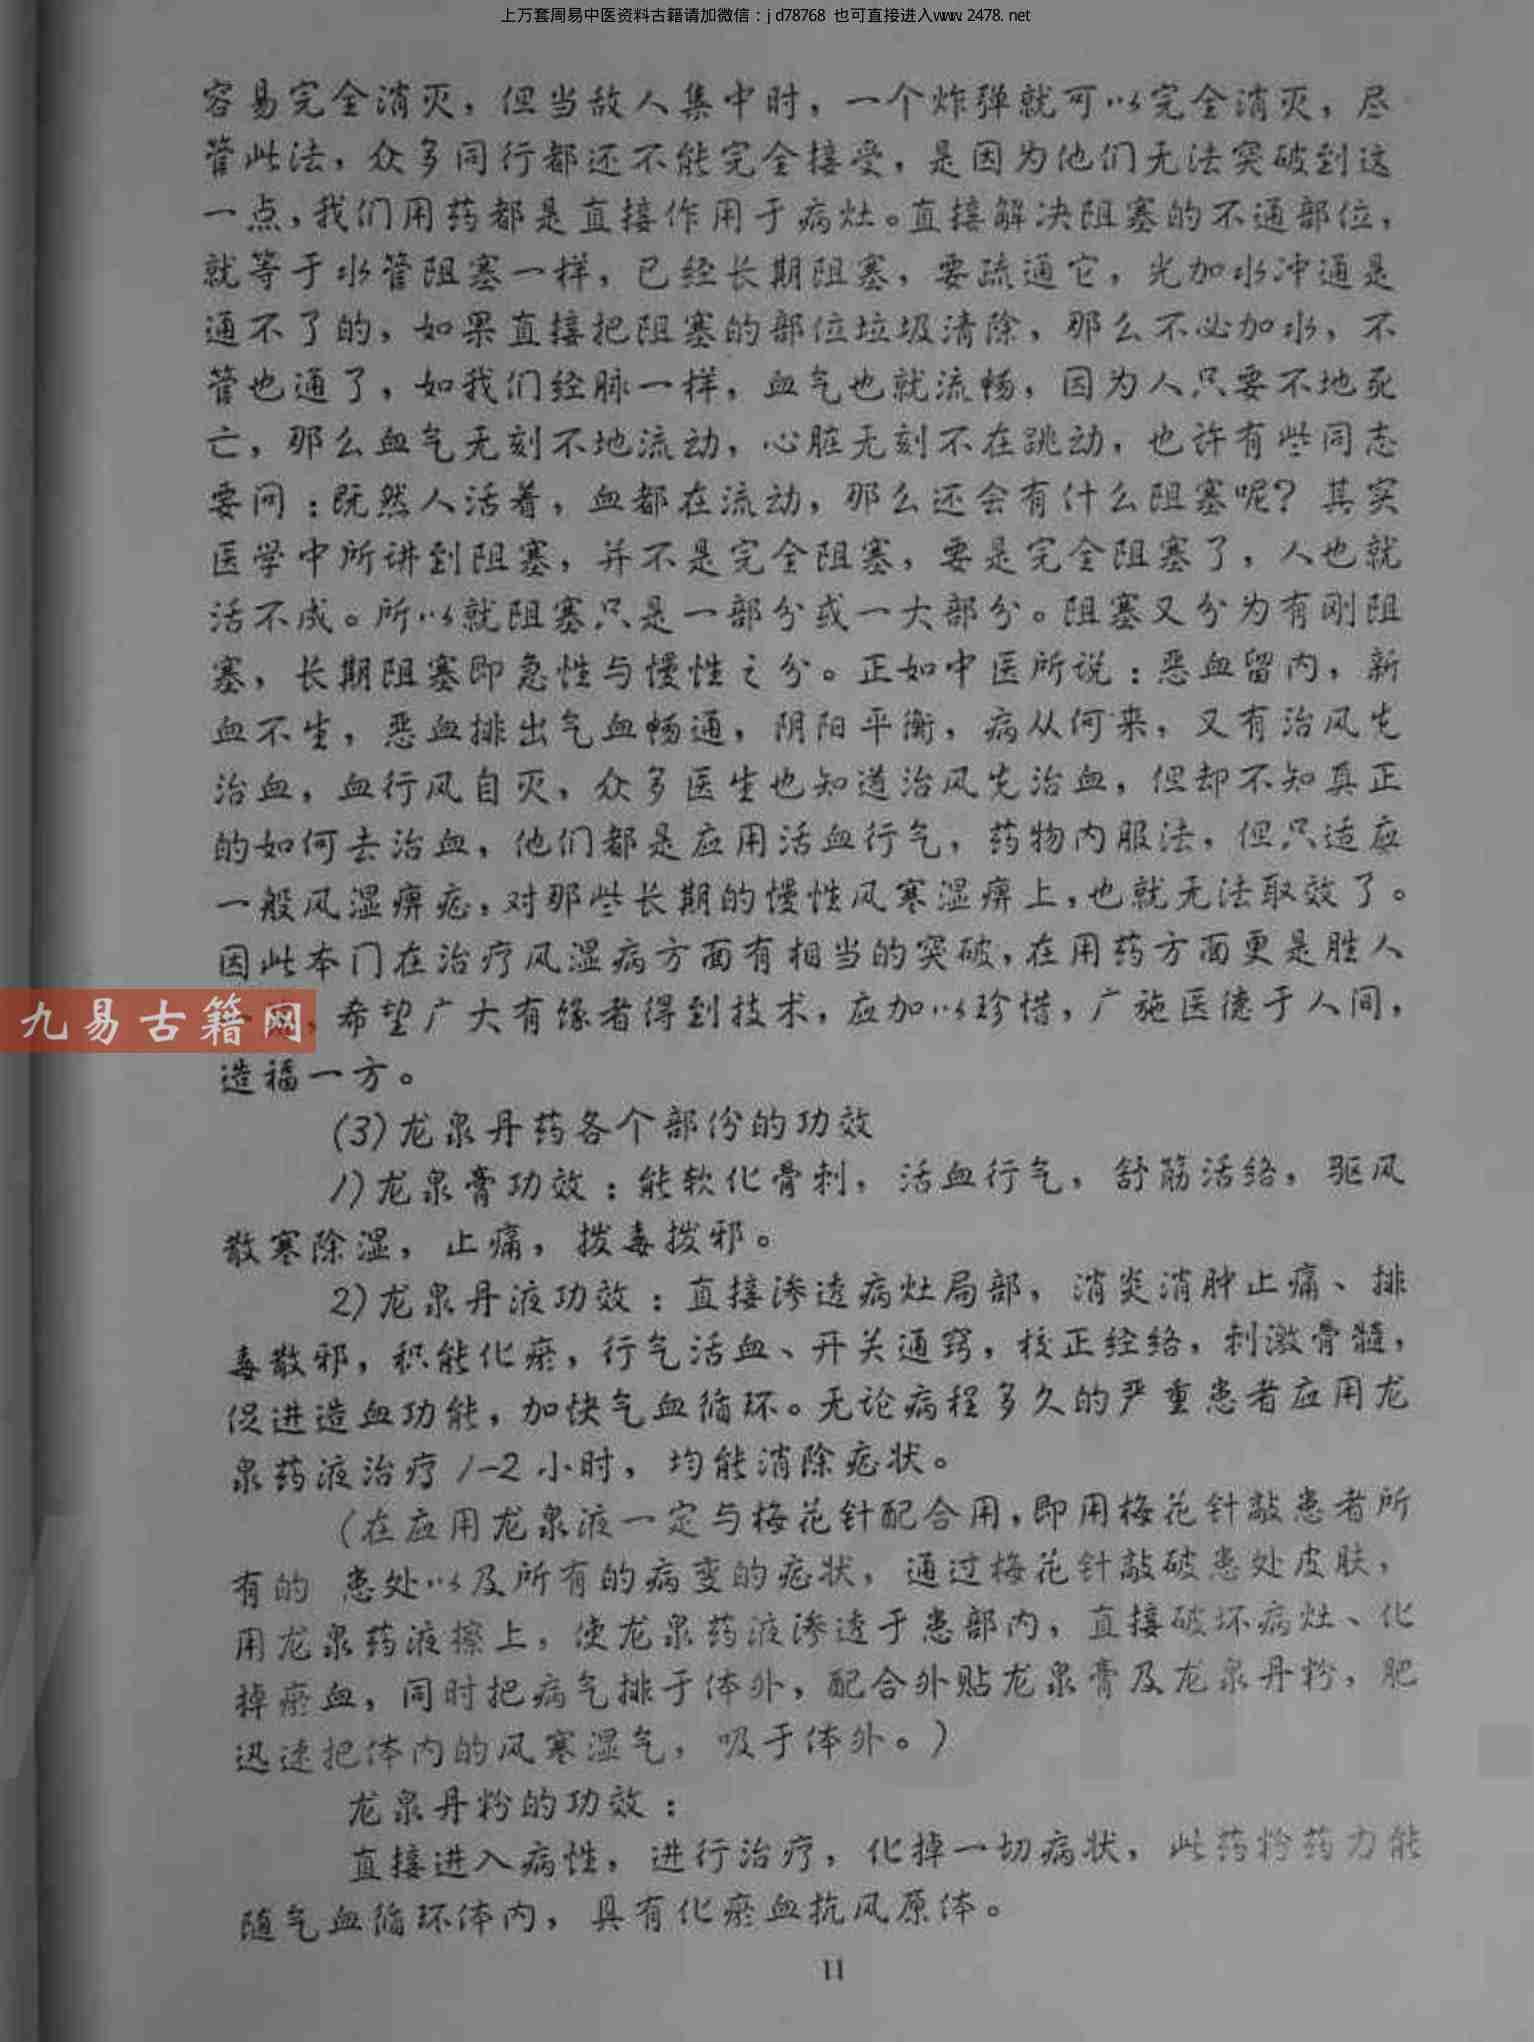 上万套周易中医资料古籍请加微信：jd78768 也可直接进入www.2478.net
容易完全消灭，但当敌人集中时，一个炸弹就可以完全消灭，尽
管此法，众多同行都还不能完全接受，是因为他们无法突破到这
一点，我们用药都是直接作用于病灶。直接解决阻塞的不通部位，
就等于水管阻塞一样，已经长期阻塞，要疏通它，光加水冲通是
通不了的，如果直接把阻塞的部位垃圾清除，那么不必加水，不
管也通了，如我们经脉一样，血气也就流畅，因为人只要不地死
亡，那么血气无刻不地流动，心脏无刻不在跳动，也许有些同志
要问：既然人活着，血都在流动，那么还会有什么阻塞呢？其实
医学中所讲到阻塞，并不是完全阻塞，要是完全阻塞了，人也就
活不成。所以就阻塞只是一部分或一大部分。阻塞又分为有刚阻
塞，长期阻塞即急性与慢性之分。正如中医所说：恶血留内，新
血不生，恶血排出气血畅通，阴阳平衡，病从何来，又有治风先
治血，血行风自灭，众多医生也知道治风先治血，但却不知真正
的如何去治血，他们都是应用活血行气，药物内服法，但只适应
一般风湿痹症，对那些长期的慢性风寒湿痹上，也就无法取效了。
因此本门在治疗风湿病方面有相当的突破，在用药方面更是胜人
九易古籍网
，希望广大有缘者得到技术，应加以珍惜，广施医德于人间，
造福一方。
(3)龙泉丹药各个部份的功效
1)龙泉膏功效：能软化骨刺，活血行气，舒筋活络，驱风
散寒除湿，止痛，拨毒拨邪。
2)龙泉丹液功效：直接渗透病灶局部，消炎消肿止痛、排
毒散邪，积能化瘀，行气活血、开关通窍，校正经络，刺激骨髓，
促进造血功能，加快气血循环。无论病程多久的严重患者应用龙
泉药液治疗1-2小时，均能消除症状。
(在应用龙泉液一定与梅花针配合用，即用梅花针敲患者所
有的 患处以及所有的病变的症状，通过梅花针敲破患处皮肤，
用龙泉药液擦上，使龙泉药液渗透于患部内，直接破坏病灶、化
掉瘀血，同时把病气排于体外，配合外贴龙泉膏及龙泉丹粉，肥
迅速把体内的风寒湿气，吸于体外。)
龙泉丹粉的功效：
直接进入病性，进行治疗，化掉一切病状，此药粉药力能
随气血循环体内，具有化瘀血抗风原体。
11